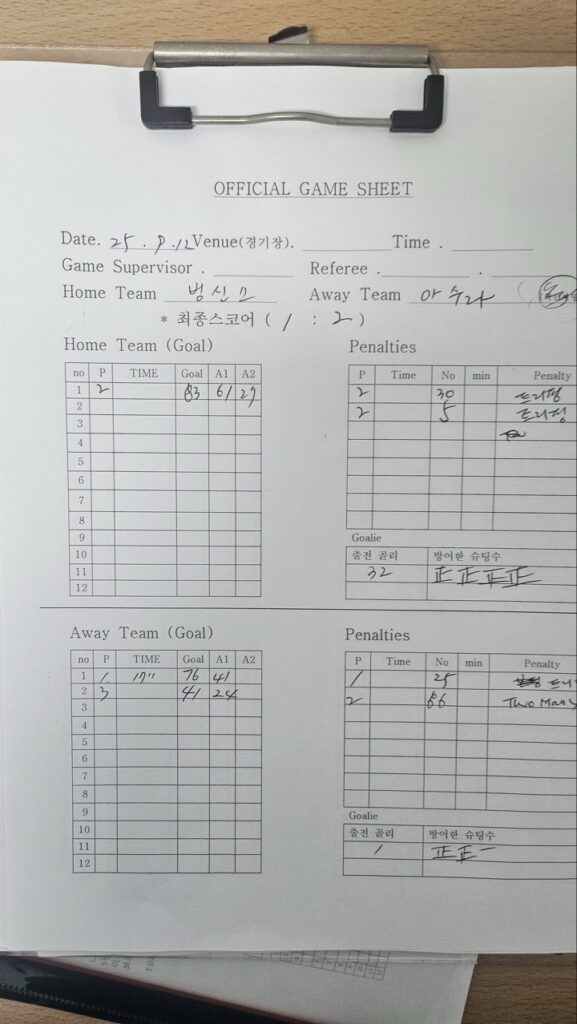 OFFICIAL GAME SHEET
Date. 25 . 9 .12 Venue(경기장). Time .
Game Supervisor . Referee . .
Home Team 범신고 Away Team 아수라
* 최종스코어 ( 1 : 2 )
Home Team (Goal) Penalties
no P TIME Goal A1 A2
1 2 83 61 27
2
3
4
5
6
7
8
9
10
11
12
P Time No min Penalty
2 30 트리핑
2 5 트리핑
Goalie
출전 골리 방어한 슈팅수
32 正正正正
Away Team (Goal) Penalties
no P TIME Goal A1 A2
1 1 17" 76 41
2 3 41 24
3
4
5
6
7
8
9
10
11
12
P Time No min Penalty
1 25 트리
2 66 Two Man
Goalie
출전 골리 방어한 슈팅수
1 正正一